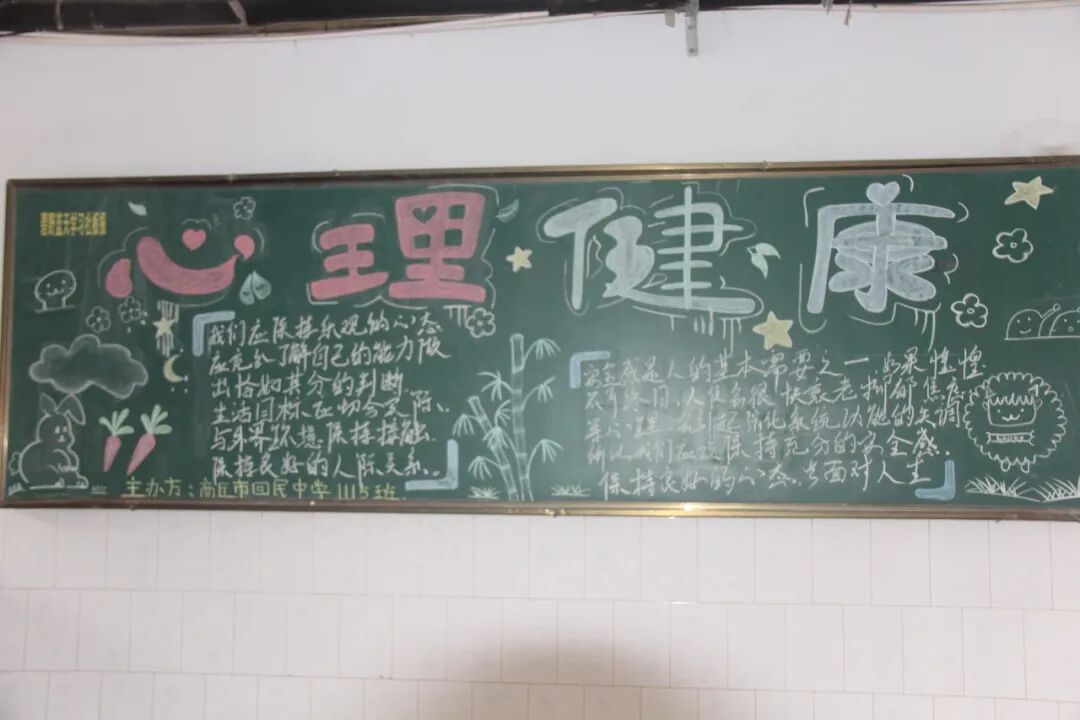 碧野蓝天学习社板报
心理健康
我们应保持乐观的心态
应充分了解自己的能力做
出恰如其分的判断.
生活目标应切合实际.
与外界环境保持接触.
保持良好的人际关系.
主办方:商丘市回民中学1115班
安全感是人的基本需要之一.如果惶惶
不可终日,人便会很快衰老.抑郁焦虑
等心理会引起消化系统功能的失调
我们应该保持充分的安全感.
保持良好的心态,去面对人生